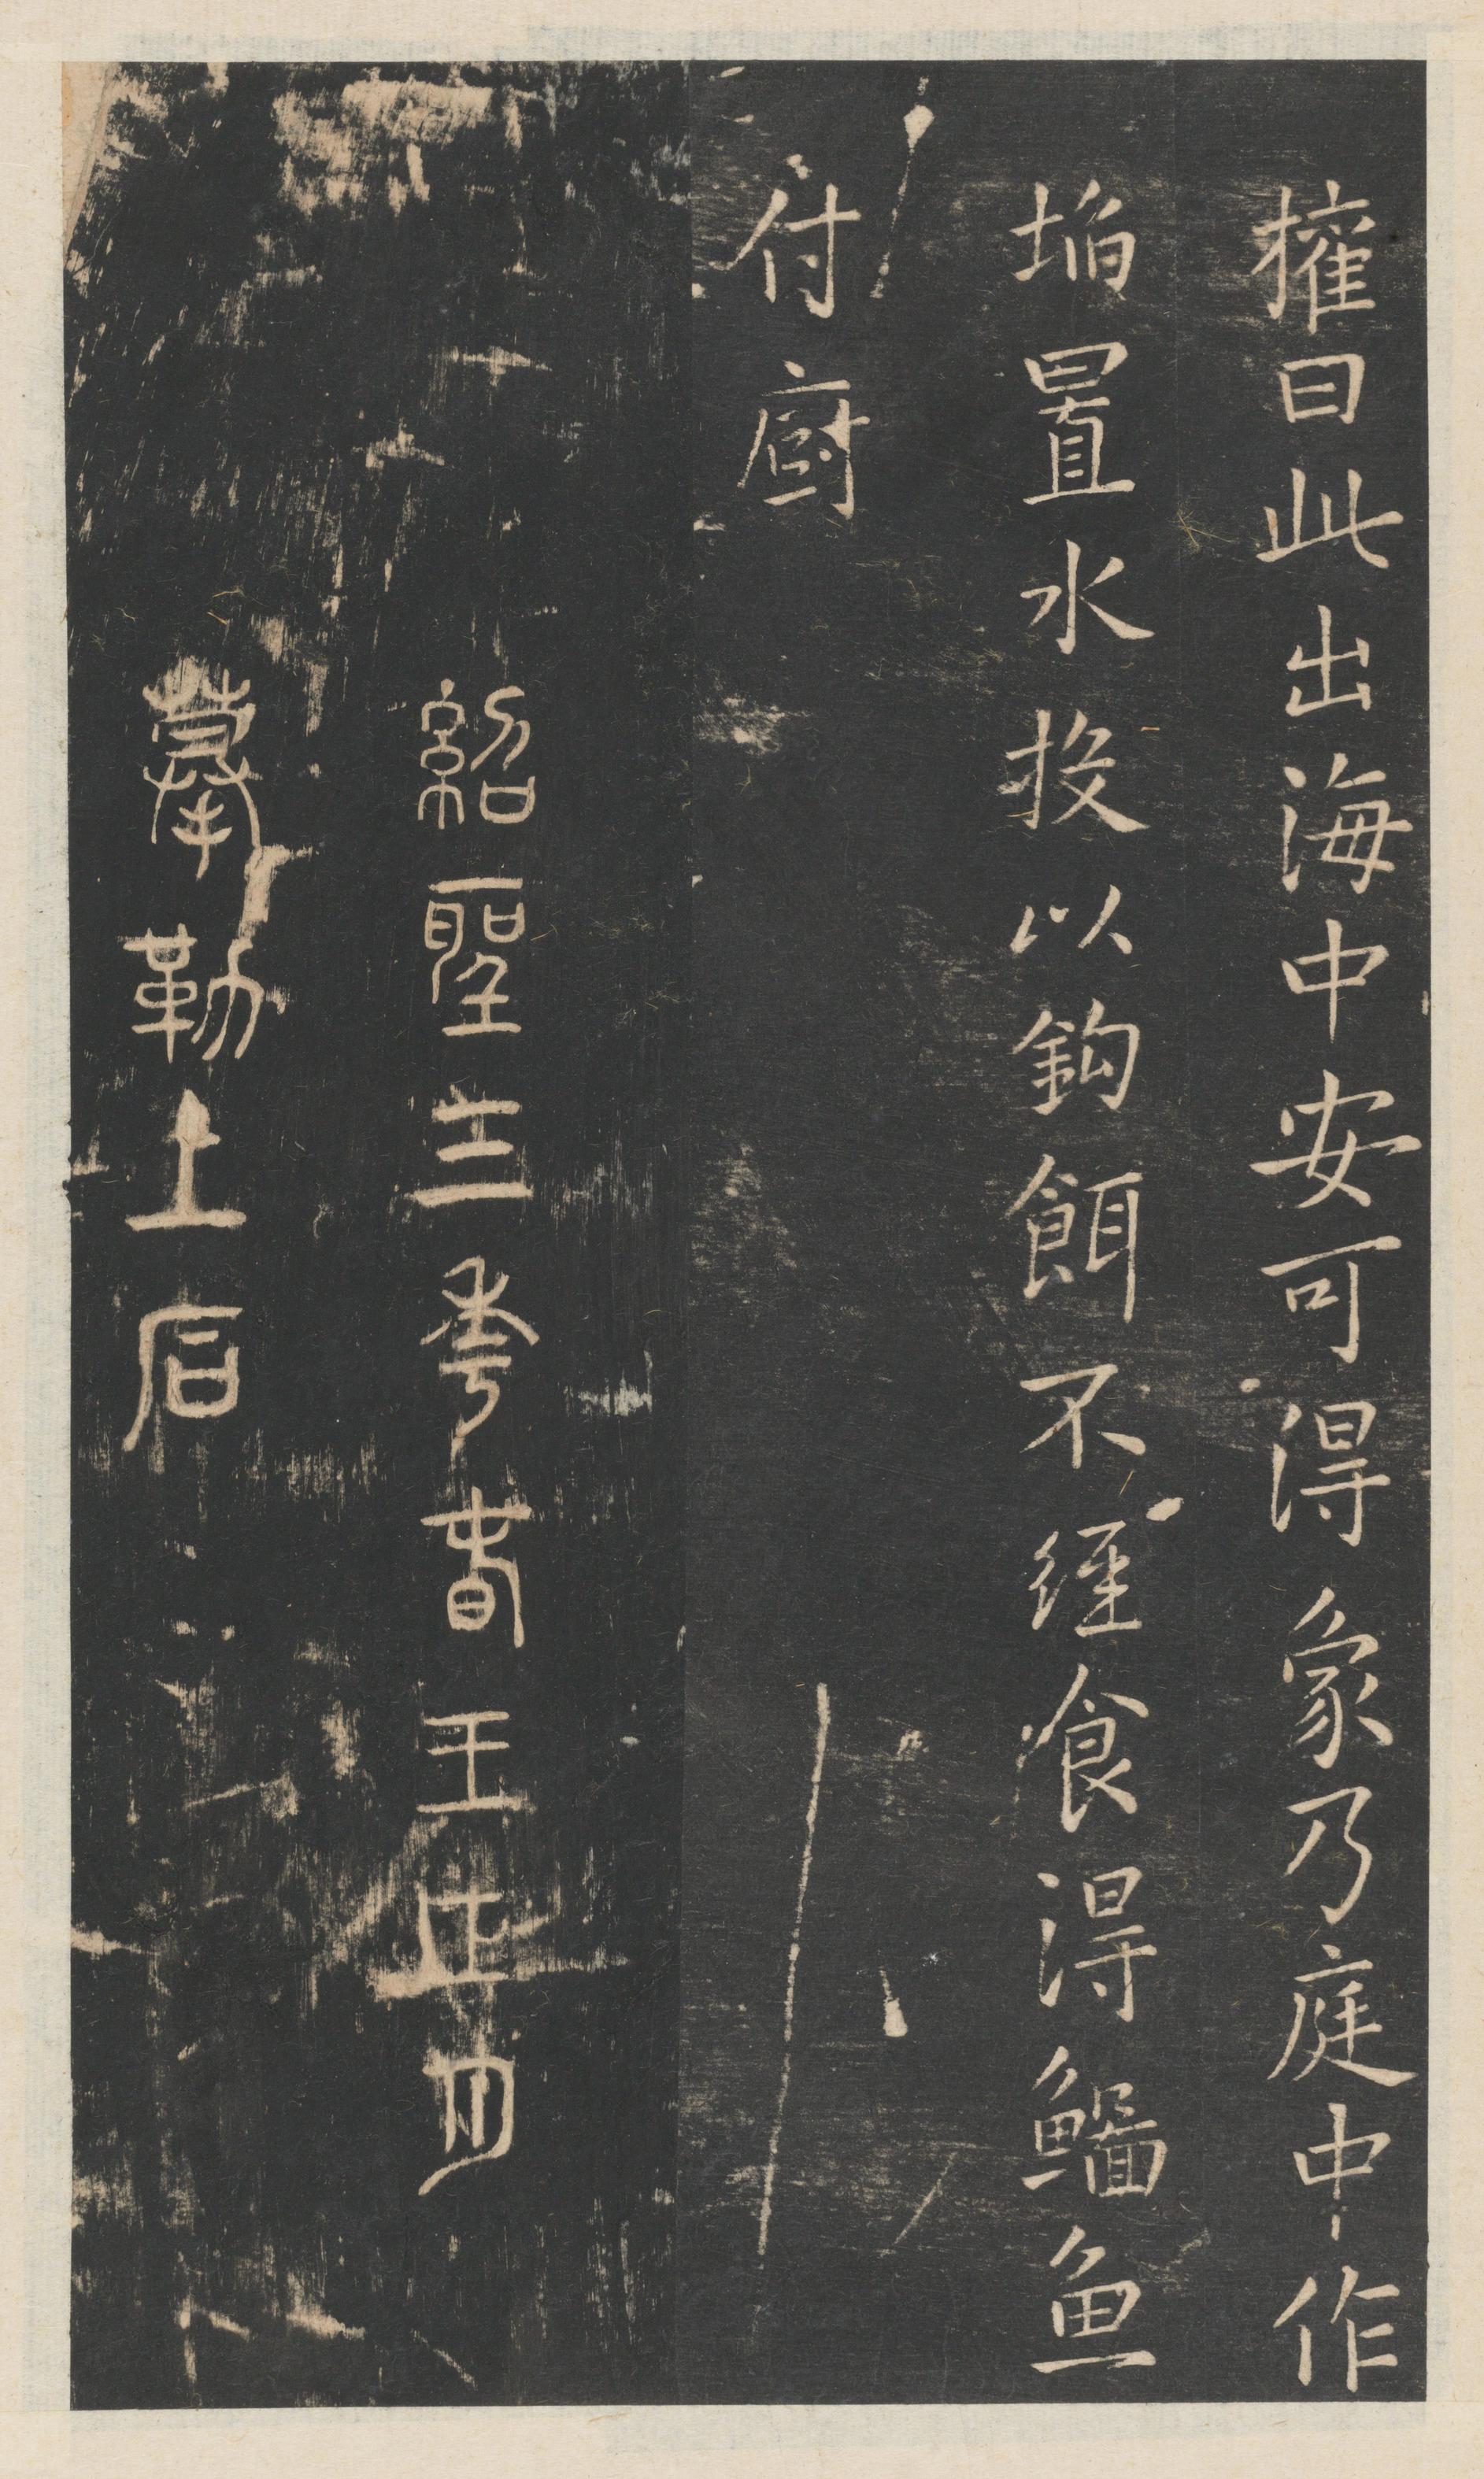 權曰此出海中安可得象乃庭中作
埳置水投以鈎餌不經食得鯔魚
付廚
紹聖三年春王正月
摹勒上石